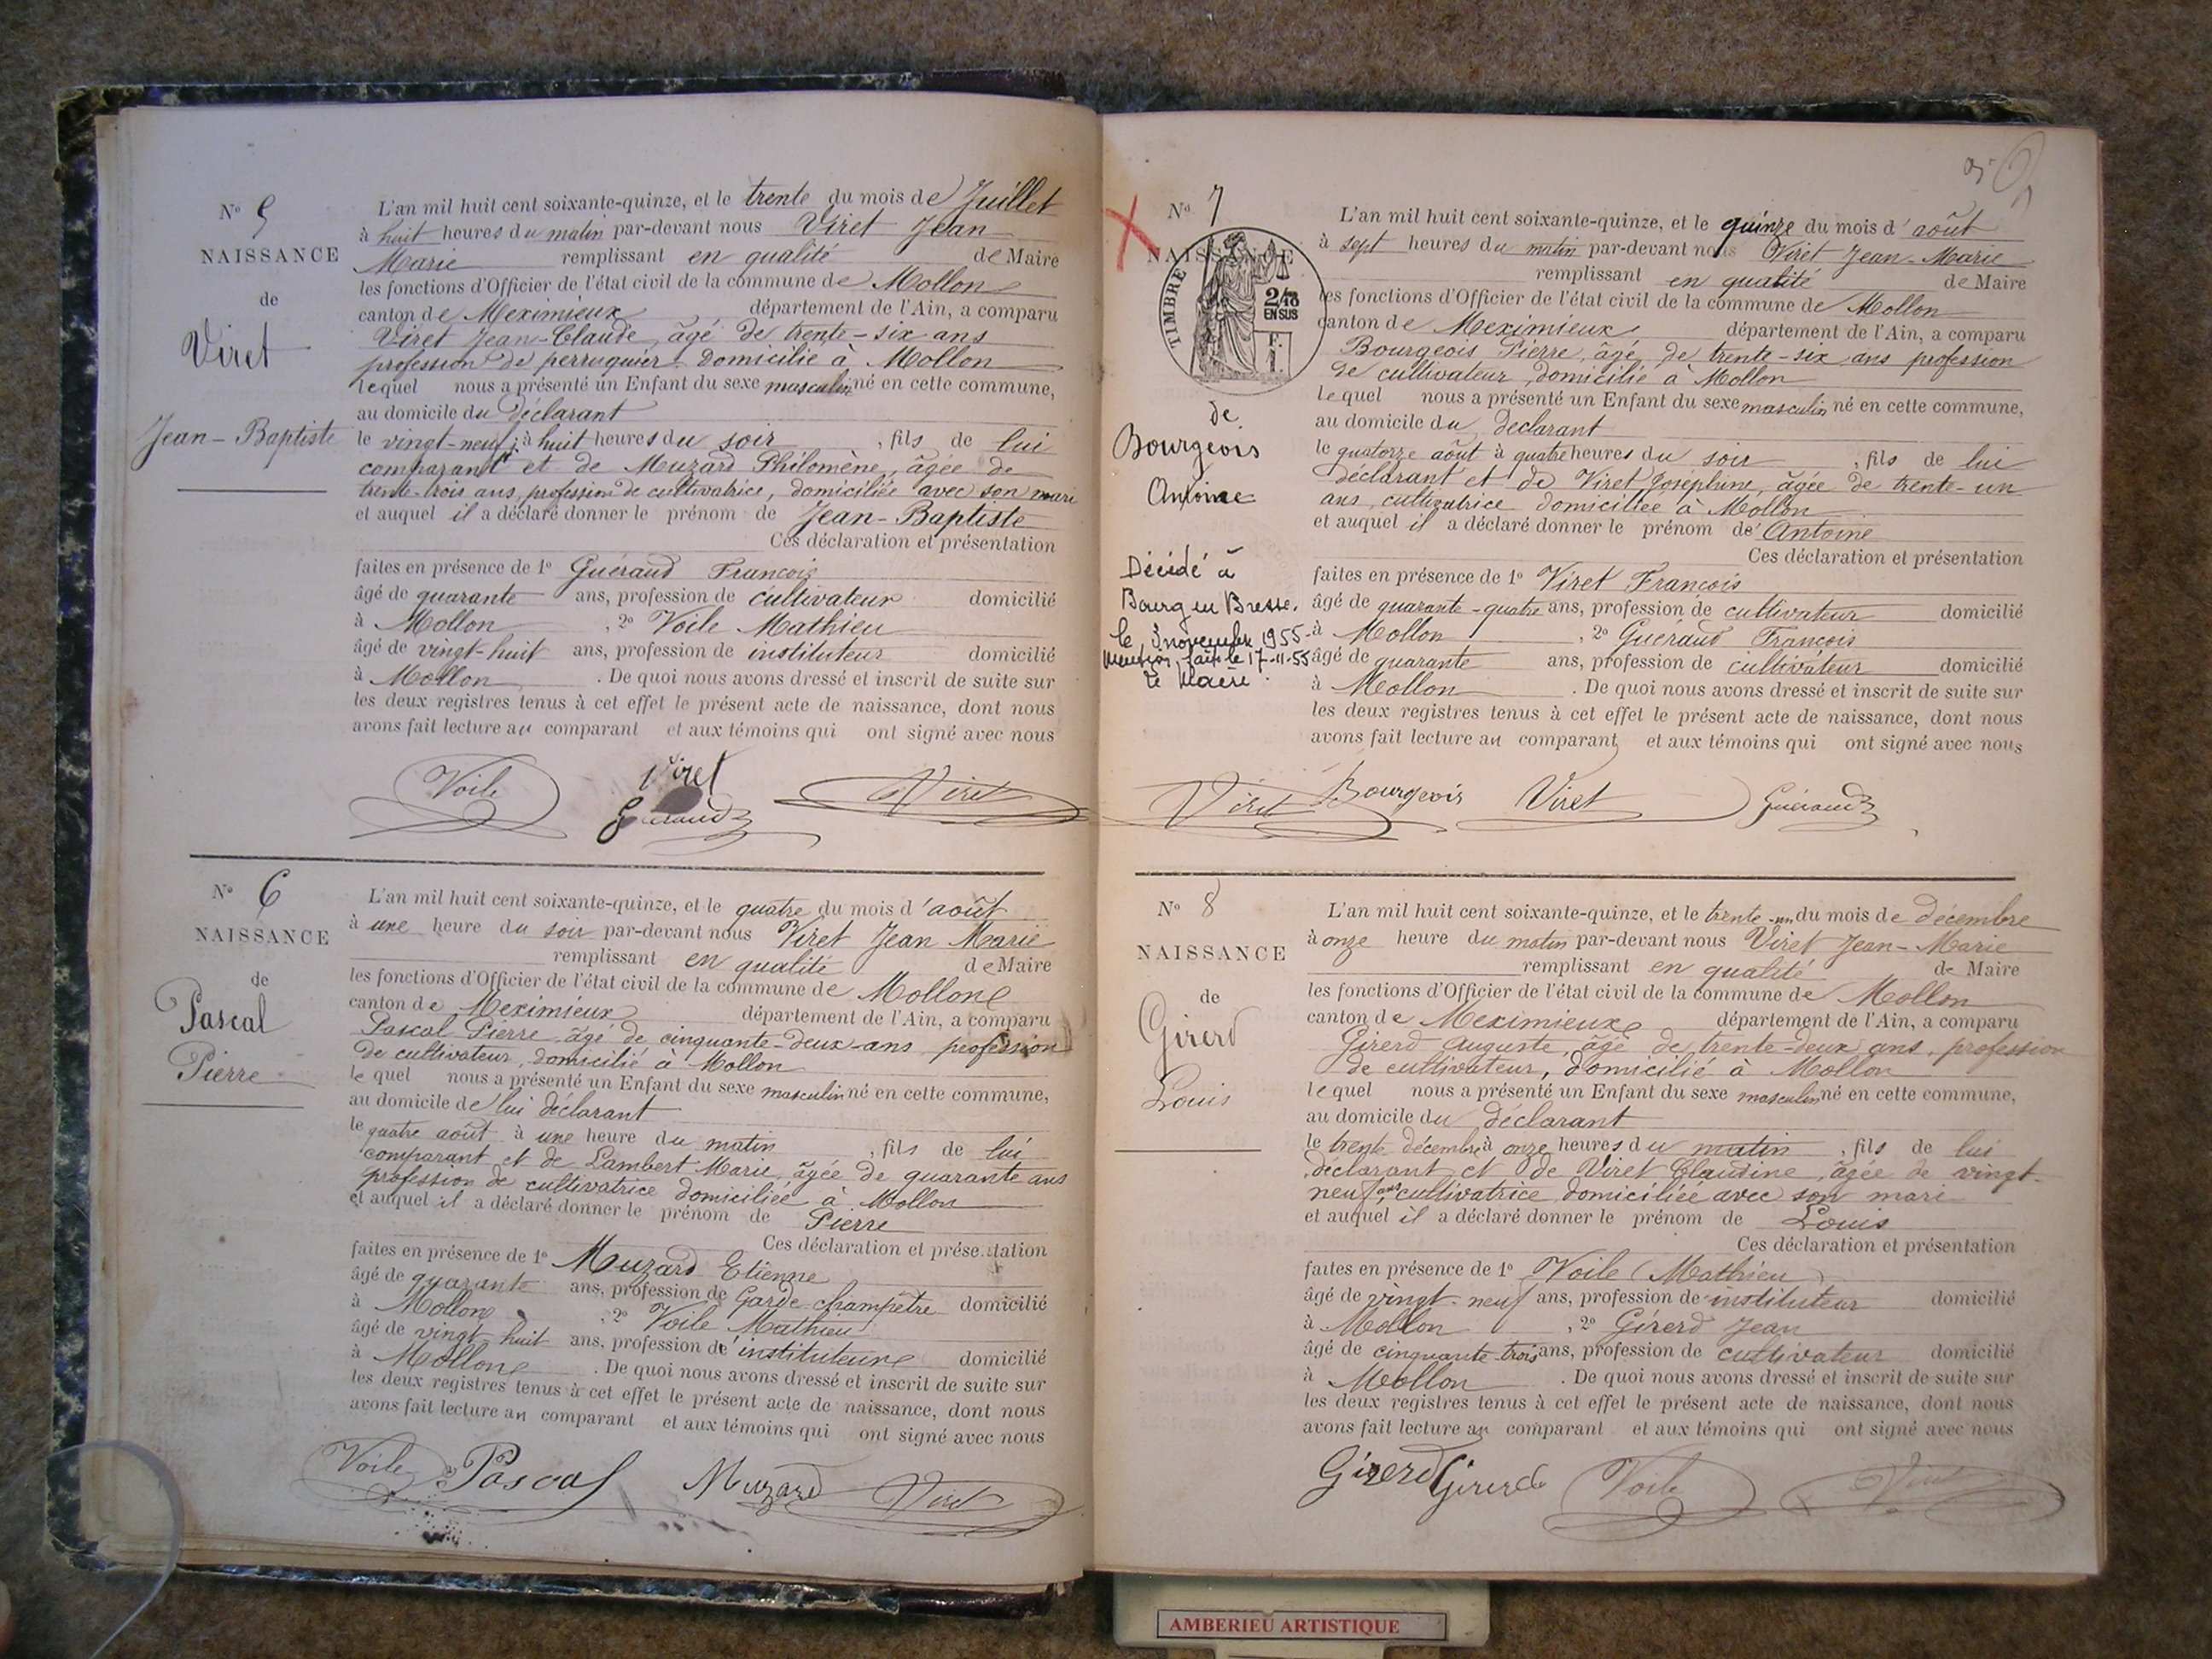 Nº 5
NAISSANCE
de
Viret
Jean-Baptiste
L'an mil huit cent soixante-quinze, et le trente du mois de Juillet
à huit heures du matin par-devant nous Viret Jean
Marie remplissant en qualité de Maire
les fonctions d'Officier de l'état civil de la commune de Mollon
canton de Meximieux département de l'Ain, a comparu
Viret Jean-Claude, âgé de trente-six ans
profession de perruquier domicilié à Mollon
lequel nous a présenté un Enfant du sexe masculin né en cette commune,
au domicile du déclarant
le vingt-neuf, à huit heures du soir, fils de lui
comparant et de Muzard Philomène, âgée de
trente-trois ans, profession de cultivatrice, domiciliée avec son mari
et auquel il a déclaré donner le prénom de Jean-Baptiste
Ces déclaration et présentation
faites en présence de 1º Guéraud François
âgé de quarante ans, profession de cultivateur domicilié
à Mollon, 2º Voile Mathieu
âgé de vingt-huit ans, profession de instituteur domicilié
à Mollon. De quoi nous avons dressé et inscrit de suite sur
les deux registres tenus à cet effet le présent acte de naissance, dont nous
avons fait lecture au comparant et aux témoins qui ont signé avec nous
Voile Viret Viret
Guéraud
Nº 6
NAISSANCE
de
Pascal
Pierre
L'an mil huit cent soixante-quinze, et le quatre du mois d'août
à une heure du soir par-devant nous Viret Jean Marie
remplissant en qualité de Maire
les fonctions d'Officier de l'état civil de la commune de Mollon
canton de Meximieux département de l'Ain, a comparu
Pascal Pierre âgé de cinquante-deux-ans profession
de cultivateur, domicilié à Mollon
le quel nous a présenté un Enfant du sexe masculin né en cette commune,
au domicile de lui déclarant
le quatre août à une heure du matin, fils de lui
comparant et de Lambert Marie, âgée de quarante ans
profession de cultivatrice domiciliée à Mollon
et auquel il a déclaré donner le prénom de Pierre
Ces déclaration et présentation
faites en présence de 1º Muzard Etienne
âgé de quarante ans, profession de Garde-champêtre domicilié
à Mollon, 2º Voile Mathieu
âgé de vingt huit ans, profession d'instituteur domicilié
à Mollon. De quoi nous avons dressé et inscrit de suite sur
les deux registres tenus à cet effet le présent acte de naissance, dont nous
avons fait lecture au comparant et aux témoins qui ont signé avec nous
Voile Pascal Muzard Viret
Nº 7
NAISSANCE
TIMBRE
2/10
EN SUS
de
Bourgeois
Antoine
Décédé à
Bourg en Bresse.
le 3 novembre 1955-
Mention faite le 17-11-55
Le Maire.
L'an mil huit cent soixante-quinze, et le quinze du mois d'août
à sept heures du matin par-devant nous Viret Jean-Marie
remplissant en qualité de Maire
les fonctions d'Officier de l'état civil de la commune de Mollon
canton de Meximieux département de l'Ain, a comparu
Bourgeois Pierre, âgé de trente-six ans profession
de cultivateur, domicilié à Mollon
Lequel nous a présenté un Enfant du sexe masculin né en cette commune,
au domicile du declarant
le quatorze août à quatre heures du soir, fils de lui
déclarant et de Viret Joséphine, âgée de trente-un
ans, cultivatrice domiciliée à Mollon
et auquel il a déclaré donner le prénom d'Antoine
Ces déclaration et présentation
faites en présence de 1º Viret François
âgé de quarante-quatre ans, profession de cultivateur domicilié
à Mollon, 2º Guéraud François
âgé de quarante ans, profession de cultivateur domicilié
à Mollon. De quoi nous avons dressé et inscrit de suite sur
les deux registres tenus à cet effet le présent acte de naissance, dont nous
avons fait lecture au comparant et aux témoins qui ont signé avec nous
Viret Bourgeois Viret Guéraud
Nº 8
NAISSANCE
de
Girerd
Louis
L'an mil huit cent soixante-quinze, et le trente-un du mois de décembre
à onze heure du matin par-devant nous Viret Jean-Marie
remplissant en qualité de Maire
les fonctions d'Officier de l'état civil de la commune de Mollon
canton de Meximieux département de l'Ain, a comparu
Girerd Auguste, âgé de trente-deux ans, profession
de cultivateur, domicilié à Mollon
lequel nous a présenté un Enfant du sexe masculin né en cette commune,
au domicile du déclarant
le trente décembre à onze heures du matin, fils de lui
déclarant et de Viret Claudine, âgée de vingt-
neuf ans cultivatrice domiciliée avec son mari
et auquel il a déclaré donner le prénom de Louis
Ces déclaration et présentation
faites en présence de 1º Voile (Mathieu)
âgé de vingt-neuf ans, profession de instituteur domicilié
à Mollon, 2º Girerd Jean
âgé de cinquante-trois ans, profession de cultivateur domicilié
à Mollon. De quoi nous avons dressé et inscrit de suite sur
les deux registres tenus à cet effet le présent acte de naissance, dont nous
avons fait lecture au comparant et aux témoins qui ont signé avec nous
Girerd Girerd Voile Viret
AMBERIEU ARTISTIQUE